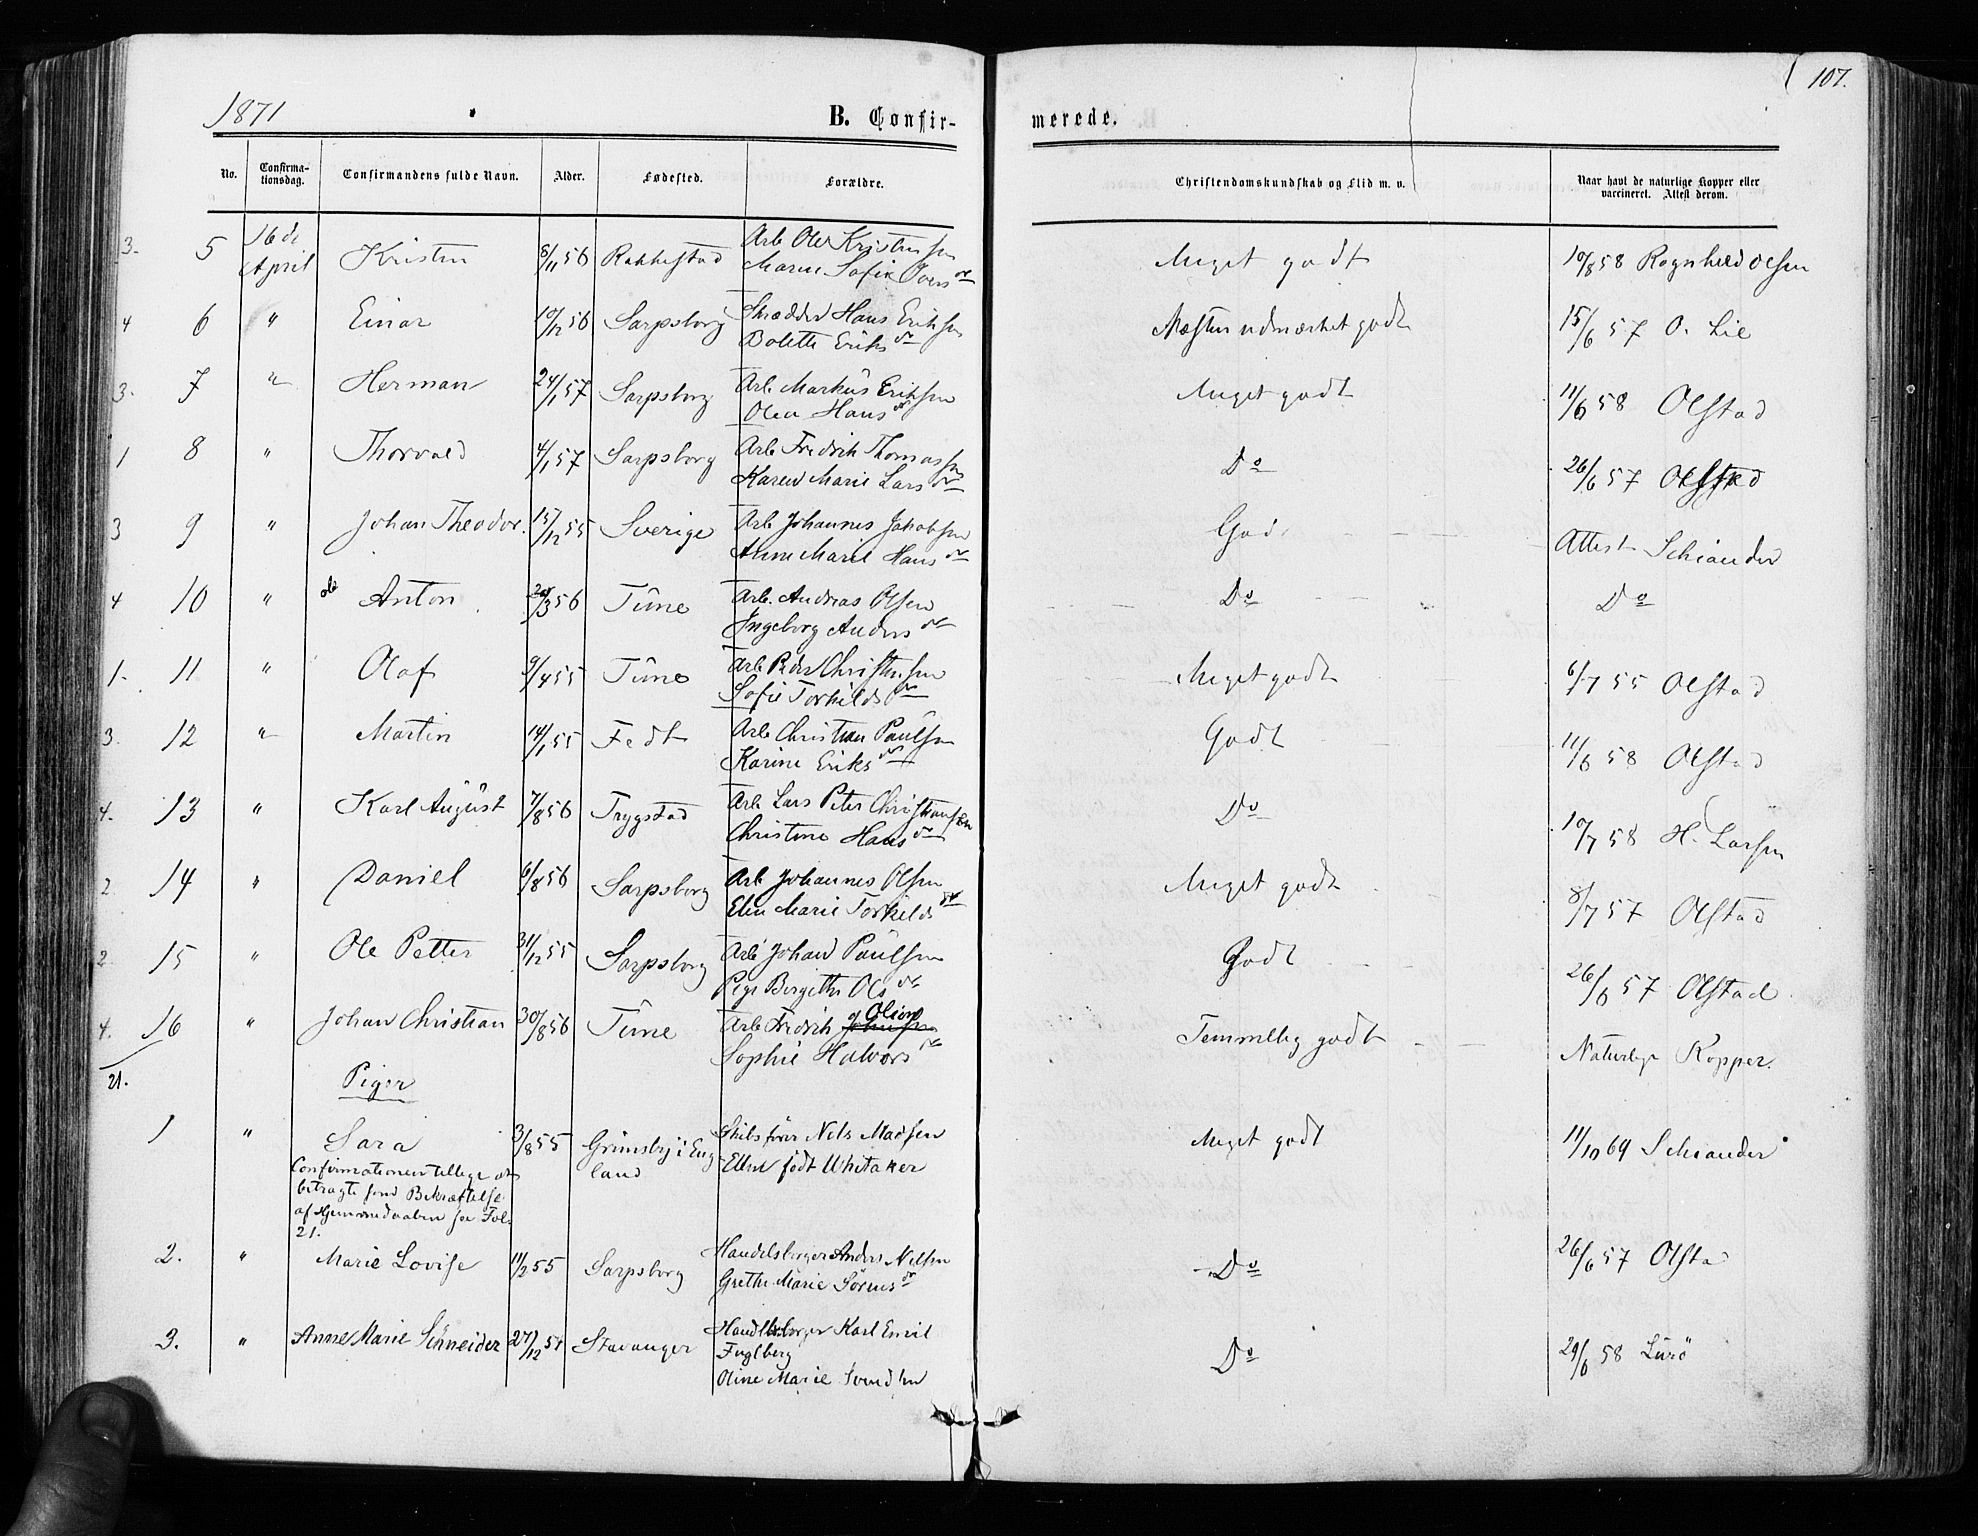 1871
B. Confir-
merede.
107.
No.
Confirma-
tionsdag.
Confirmandens fulde Navn.
Alder.
Fødested.
Forældre.
Christendomskundskab og Flid m. v.
Naar havt de naturlige Kopper eller
vaccineret. Attest derom.
3. 5 16de April Kristen 8/11 56 Rakkestad Arb Ole Kristensen
Maren Sofie Iversdr
Meget godt 10/8 58 Rognhild Olsen
4 6 " Einar 10/12 56 Sarpsborg Skrædder Hans Eriksen
Bolette Eriksdr
Næsten udmærket godt 15/6 57 O. Lie
3. 7 " Herman 24/1 57 Sarpsborg Arb. Markus Eriksen
Olea Hansdr
Meget godt 11/6 58 Olstad
1 8 " Thorvald 4/1 57 Sarpsborg Arb Fredrik Thomassen
Karen Marie Larsdr
Do 26/6 57 Olstad
3 9 " Johan Theodor. 15/12 55 Sverige Arb Johannes Jakobsen
Anne Marie Hansdr
God Attest Schiander
4 10 " Anton 20/3 56 Tune Arb. Andreas Olsen
Ingeborg Andersdr
Do Do
1. 11 " Olaf 9/4 55 Tune Arb Peder Christensen
Sofie Torkildsdr
Meget godt 6/7 55 Olstad
3. 12 " Martin 14/1 55 Fedt Arb Christian Paulsen
Karine Eriksdr
Godt 11/6 58 Olstad
4. 13 " Karl August 7/8 56 Trygstad Arb Lars Peter Christiansen
Christine Hansdr
Do 10/7 58 H. Larsen
2 14 " Daniel 6/8 56 Sarpsborg Arb Johannes Olsen
Elen Marie Torkildsdr
Meget godt 8/7 57 Olstad
2 15 " Ole Petter 31/12 55 Sarpsborg Arb Johan Paulsen
Pige Birgitte Olsdr
Godt 26/6 57 Olstad
4. 16 " Johan Christian 30/8 56 Tune Arb Fredrik Johnsen
Sophie Halvorsdr
Temmelig godt Naturlige Kopper.
21.
Piger
1 " Sara 3/8 55 Grimsby i Eng-
land Skibsfører Nels Madsen
Ellen født Whitaker
Meget godt 11/10 69 Schiander
Confirmationen tillige at
betragte som Bekræftelse
af Hjemmedaaben see Fol.
21.
2. " Marie Lovise 11/2 55 Sarpsborg Handelsborger Anders Nilsen
Grethe Marie Sörensdr
Do 26/6 57 Olsta
3. " Anne Marie Schneider 27/12 54 Stavanger Handelsborger Karl Emil
Fuglberg
Oline Marie Svendsen
Do 29/6 58 Lurö